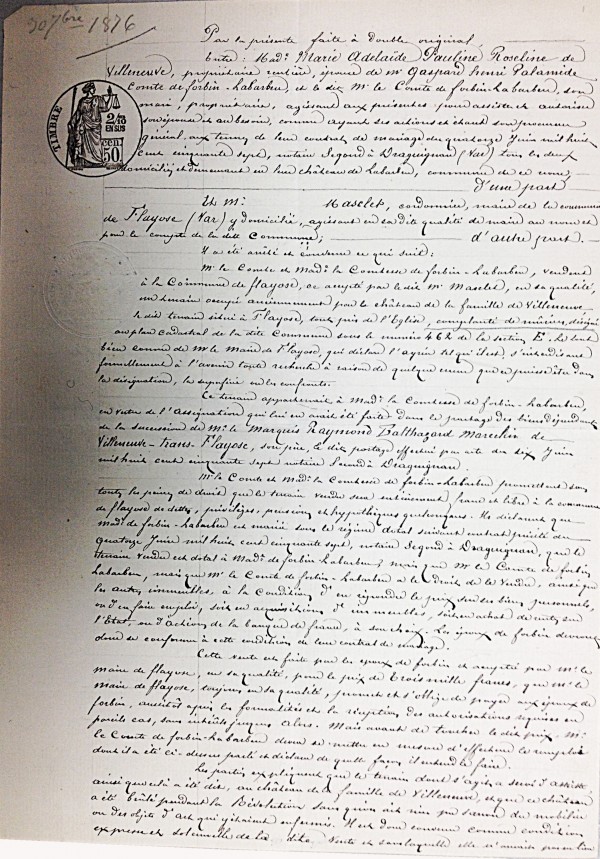 30 7bre 1876
Par la présente faite à double original,
Entre : Made Marie Adelaïde Pauline Roseline de
Villeneuve, propriétaire rentière, épouse de Mr Gaspard Henri Palamède
Comte de forbin-Labarben, et le dit Mr le Comte de forbin-Labarben, son
mari, propriétaire, agissant aux présentes pour assister et autoriser
son épouse et au besoin, comme ayant ses actions et étant son procureur
général, aux termes de leur contrat de mariage du quatorze Juin mil huit
cent cinquante sept, notaire Segond à Draguignan (Var) tous les deux
domiciliés et demeurant en leur château de Labarben, commune de ce nom,
d'une part
TIMBRE
2/10
EN SUS
50 cen
Et Mr Masclet, cordonnier, maire de la commune
de Flayosc (Var) y domicilié, agissant en sa dite qualité de maire au nom et
pour le compte de la dite Commune; d'autre part.
Il a été arrêté et convenu ce qui suit:
Mr le Comte et Made la Comtesse de forbin-Labarben, vendent
à la Commune de flayosc, ce accepté par le dit Mr Masclet, en sa qualité,
un terrain occupé anciennement par le château de la famille de Villeneuve
le dit terrain situé à Flayosc, tout près de l'Eglise, complanté de mûriers, désigné
au plan cadastral de la dite Commune sous le numéro 464 de la section E. Le tout
bien connu de Mr le maire de Flayosc, qui déclare l'agréer tel qu'il est, s'interdisant
formellement à l'avenir toute recherche à raison de quelque erreur que ce puisse être dans
la désignation, la superficie ou les confronts.
Ce terrain appartenait à Made la Comtesse de forbin-Labarben,
en vertu de l'assignation qui lui en avait été faite dans le partage des biens dépendant
de la succession de Mr le Marquis Raymond Balthazard Marcelin de
Villeneuve-trans-Flayosc, son père, le dit partage effectué par acte du dix Juin
mil huit cent cinquante sept notaire Segond à Draguignan.
Mr le Comte et Made la Comtesse de forbin-Labarben promettent sous
toutes les peines de droit que le terrain vendu sera entièrement franc et libre à la commune
de flayosc de dettes, privilèges, pensions et hypothèques quelconques. Ils déclarent que
Made de forbin-Labarben est mariée sous le régime dotal suivant contrat précité du
quatorze Juin mil huit cent cinquante sept, notaire Segond à Draguignan, que le
terrain vendu est dotal à Made de forbin-Labarben; mais que Mr le Comte de forbin
Labarben, mais que Mr le Comte de forbin-Labarben a le droit de le vendre, ainsi que
les autres immeubles, à la condition d'en répondre le prix sur ses biens personnels,
ou d'en faire emploi, soit en acquisitions d'immeubles, soit en achat de rentes sur
l'Etat, ou d'actions de la banque de france, à son choix. Les époux de forbin devront
donc se conformer à cette condition de leur contrat de mariage.
Cette vente est faite par les époux de forbin et acceptée par Mr le
maire de flayosc, en sa qualité, pour le prix de trois mille francs, que Mr le
maire de flayosc, toujours en sa qualité, promet et s'oblige de payer aux époux de
forbin, aussitôt après les formalités et la réception des autorisations requises en
pareils cas, sans intérêts jusques alors. Mais avant de toucher le dit prix, Mr
le Comte de forbin-Labarben devra se mettre en mesure d'effectuer le remploi
dont il a été ci-dessus parlé et déclarer de quelle façon il entend le faire.
Les parties expliquent que le terrain dont s'agit, a servi d'assiette
ainsi que celà a été dit, au château de la famille de Villeneuve, et que ce château
a été brûlé pendant la Révolution sans qu'on ait rien pu sauver du mobilier
ou des objets d'art qui y étaient enfermés. Il est donc convenu comme condition
expresse et solennelle de la dite vente et sans laquelle elle n'aurait pas eu lieu